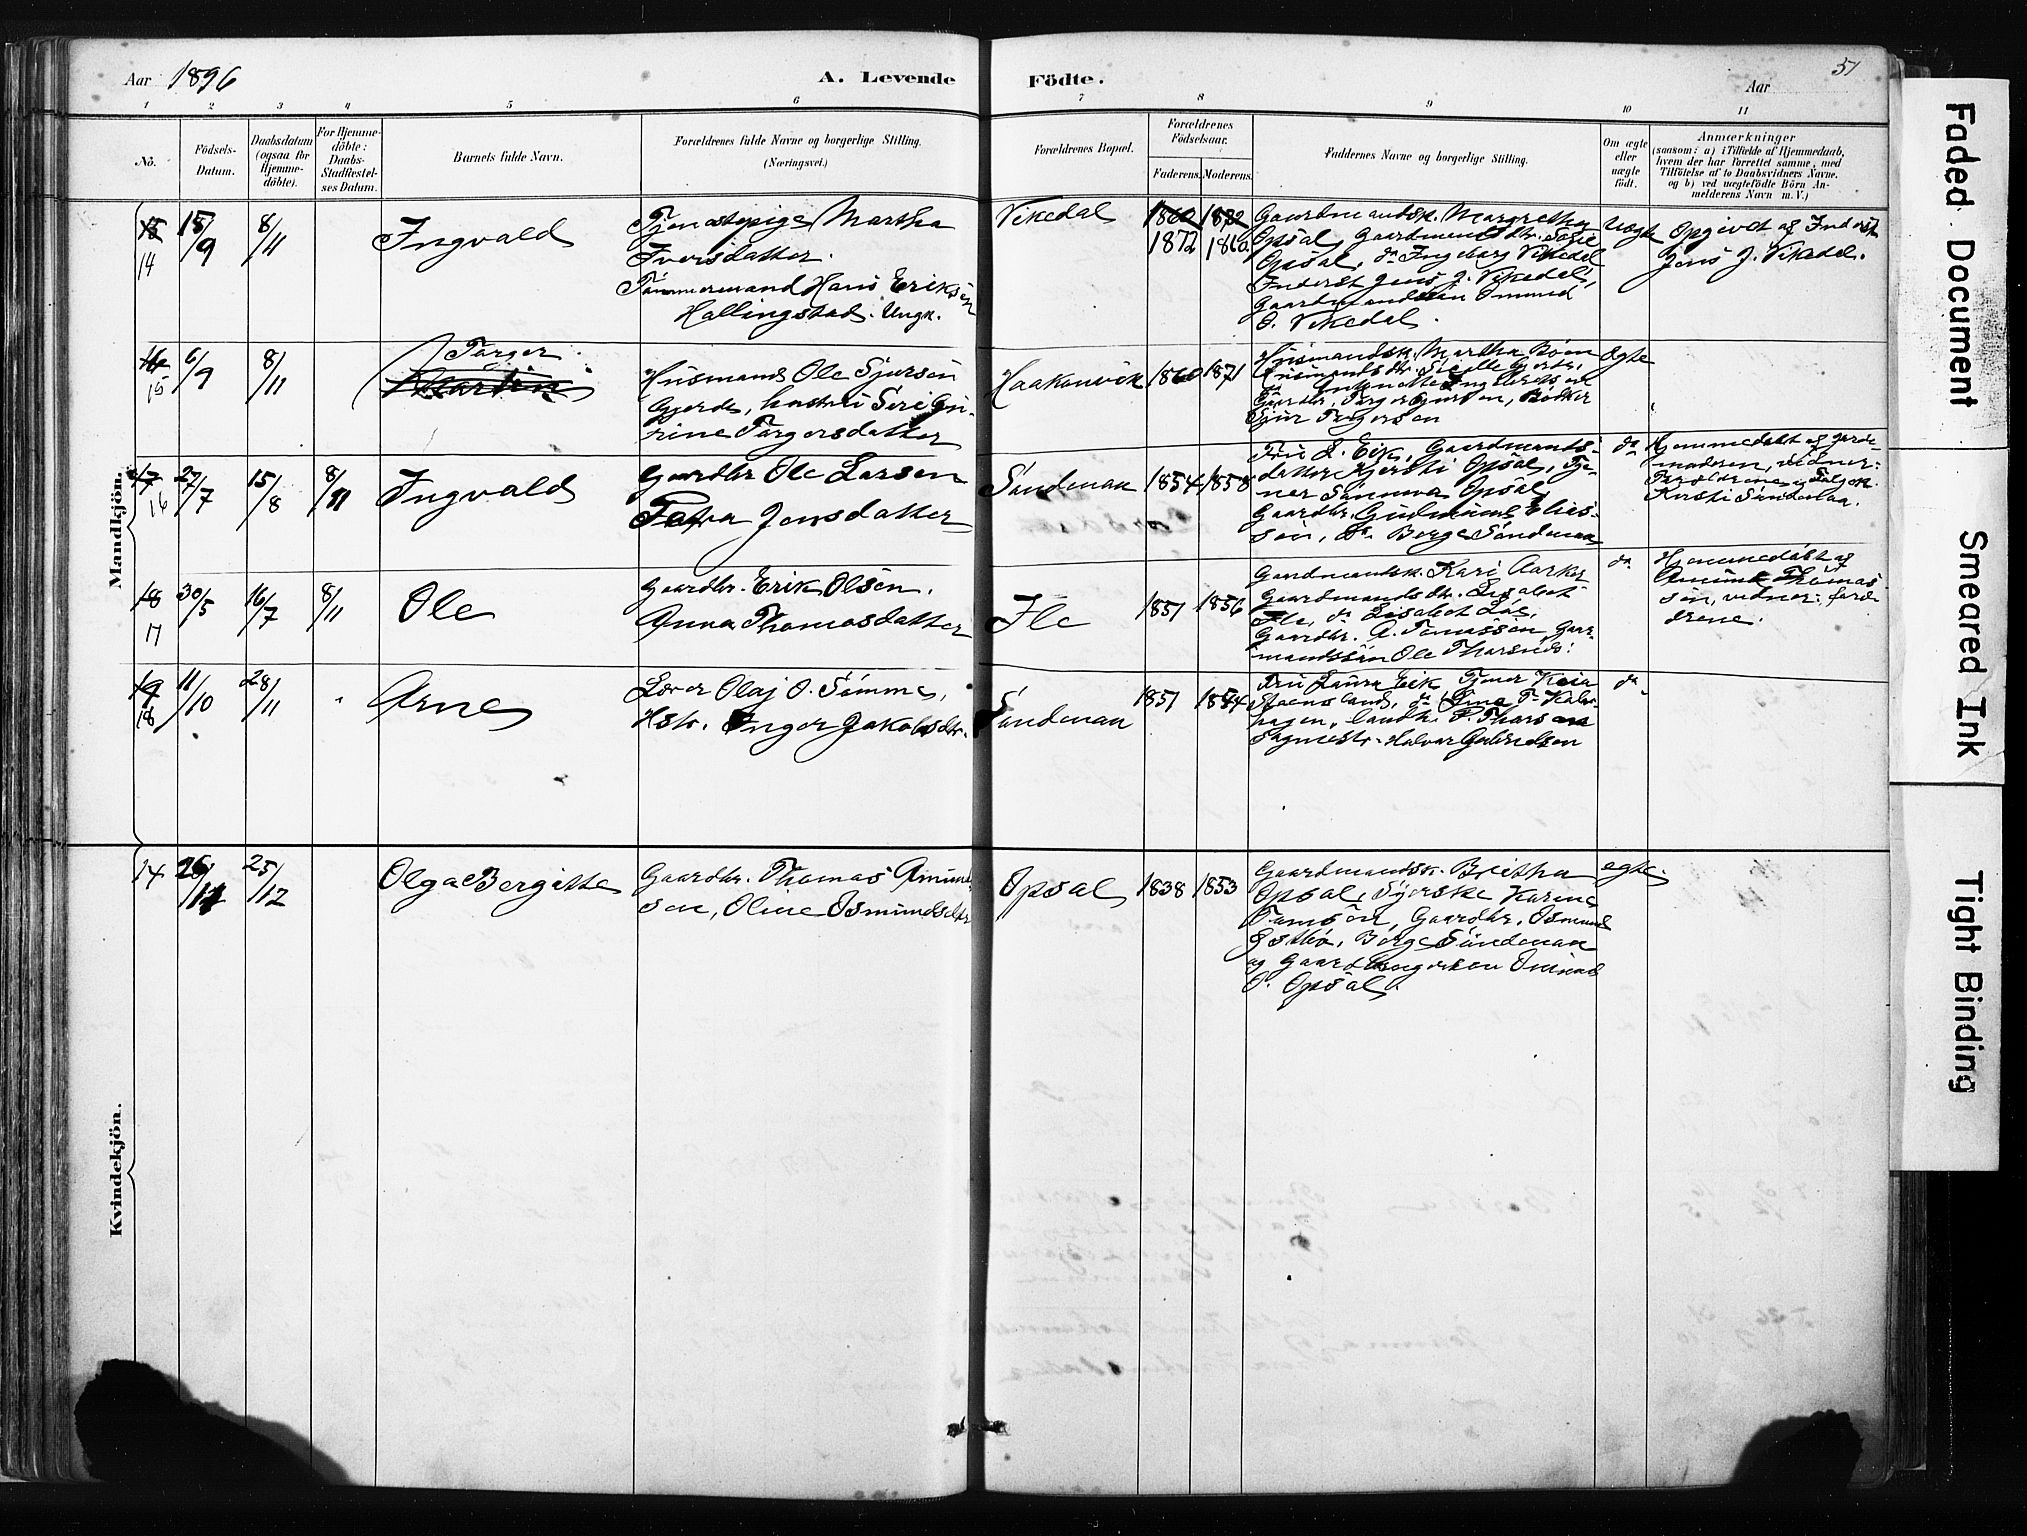 Aar 1896
A. Levende
Födte.
Aar
51
1 2 3 4 5 6 7 8 9 10 11
No.
Födsels-
Datum.
Daabsdatum
(ogsaa for
Hjemme-
döbte).
For Hjemme-
döbte:
Daabs-
Stadfæstel-
ses Datum.
Barnets fulde Navn.
Forældrenes fulde Navne og borgerlige Stilling.
(Næringsvei.)
Forældrenes Bopæl.
Forældrenes
Födselsaar.
Faderens. Moderens.
Faddernes Navne og borgerlige Stilling.
Om ægte
eller
uægte
födt.
Anmærkninger
(saasom: a) i Tilfælde af Hjemmedaab,
hvem der har forrettet samme, med
Tilföielse af to Daabsvidners Navne.
og b) ved uægtefödte Börn An-
melderens Navn m. V.)
Mandkjön.
15
14
15/9
8/11
Ingvald
Tjenestepige Martha
Iversdatter.
Tömmermand Hans Eriksen
Hallingstad. Ungk.
Vikedal
1860 1872
1872 1860
Gaardmandsk. Margrethe
Opsal, Gaardmandsdtr.
Opsal, do Ingeborg Vikedal
Inderst Jens J. Vikedal,
Gaardmandssön Ommund
O. Vikedal.
Uægte
Opgivet af Inderst
Jens J. Vikedal.
16
15
6/9
8/11
Torger
Martin
Husmand Ole Sjursen
Gjerde, hustru Seri
Torgersdatter
Haakonvik
1860 1871
Husmandsk. Martha Böen
Husmandsdtr.
Torger Sjursen, Bödker
Sjur Torgersen
Ægte
17
16
27/7
15/8
8/11
Ingvald
Gaardbr Ole Larsen
Petra Jensdatter
Sandenaa
1854 1858
Fru S. Eik, Gaardmands-
datter Kjersti Opsal, Tje-
ner Opsal,
Gaardbr. Gudmund Elias-
sen, do. Börge Sandenaa
do
Hjemmedöbt af Jorde-
moderen, vidner:
Forældrene
Kirsti Sandenaa.
18
17
30/5
16/7
8/11
Ole
Gaardbr. Erik Olsen.
Anna Thomasdatter
Ile
1851 1856
Gaardmandsk. Kari
Gaardmandsdtr. Lisabet
Ile, do Lisabet
Gaardbr. A. Tomassen, Gaar-
mandssön Ole
do
Hjemmedöbt af
Amund Thomas
sen, vidner: foræl
drene.
19
18
11/10
28/11
Arne
Olaj O. Sömme,
Hstr. Inger Jakobsdtr.
Sandenaa
1851 1854
Fru Laura Eik Tjener
hagen, Landh. P. Tharsen
Halvar Gabrielsen
do
Kvindekjön.
14
26/11
25/12
Olga Bergitte
Gaardbr. Thomas Amund-
sen, Oline Osmundsdtr.
Opsal
1838 1853
Gaardmandsk. Breitha
Opsal, Syerske Karine
Tomsen, Gaardbr. Osmund
Östhö, Börge Sandenaa
og Gaardbrugersön
O. Opsal.
egte.
Faded Document
Smeared Ink
Tight Binding